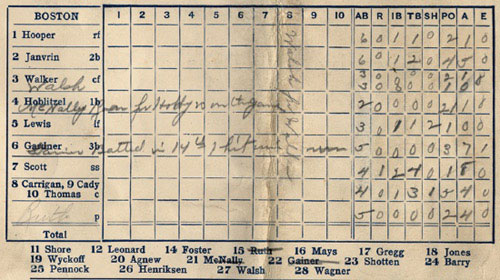 BOSTON 1 2 3 4 5 6 7 8 9 10 AB R IB TB SH PO A E
1 Hooper rf 6 0 1 1 0 2 1 0
2 Janvrin 2b 6 0 1 2 0 4 5 0
3 Walker cf 3 0
Walsh 3 0
4 Hoblitzel 1b 2 0 0 0 0 21 1 0
McNally ran for Hobby won the game
5 Lewis lf 3 0 1 1 2 1 0 0
6 Gardner 3b 5 0 0 0 0 3 7 1
Gainer Batted in 14th, hit run
7 Scott ss 4 1 2 4 0 1 8 0
8 Carrigan, 9 Cady
10 Thomas c 4 0 1 3 1 5 4 0
Ruth p 5 0 0 0 0 2 4 0
Total
11 Shore 12 Leonard 14 Foster 15 Ruth 16 Mays 17 Gregg 18 Jones
19 Wyckoff 20 Agnew 21 McNally 22 Gainer 23 Shotten 24 Barry
25 Pennock 26 Henriksen 27 Walsh 28 Wagner